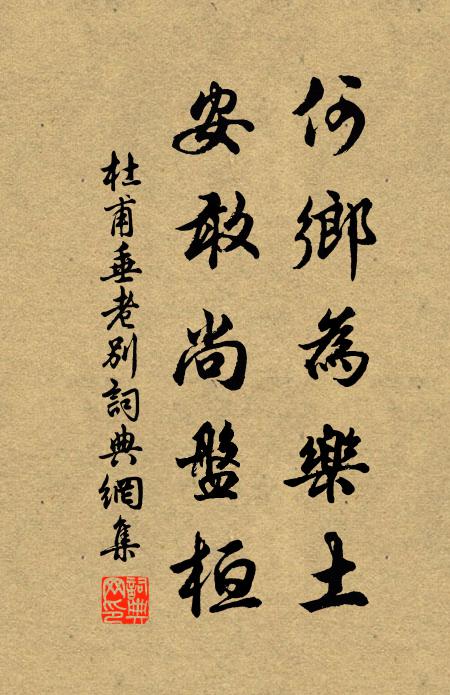 何鄉為樂土
安敢尚盤桓
杜甫垂老別詞典網集
詞典网印